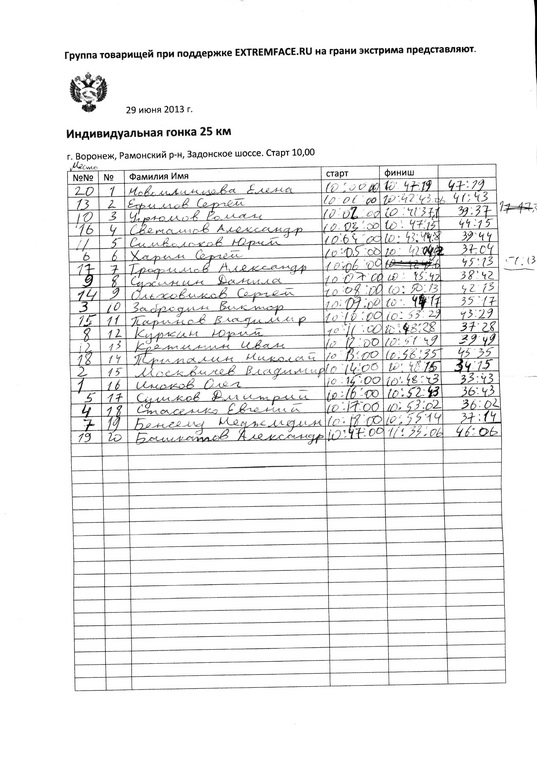 Группа товарищей при поддержке EXTREMFACE.RU на грани экстрима представляют.
29 июня 2013 г.
Индивидуальная гонка 25 км
г. Воронеж, Рамонский р-н, Задонское шоссе. Старт 10,00
Место
№№ № Фамилия Имя старт финиш
20 1 Елена 10:00:00 10:47:19 47:19
13 2 Ефимов Сергей 10:01:00 10:42:43:06 41:43
10 3 Угрюмов Роман 10:02:00 10:41:37 39:37
16 4 Александр 10:03:00 10:47:15 44:15
11 5 Символоков Юрий 10:04:00 10:43:44 39:44
6 6 Харин Сергей 10:05:00 10:42:04 37:04
17 7 Трофимов Александр 10:06:00 45:13
9 8 Сухинин Данила 10:07:00 10:45:42 38:42
14 9 Ольховиков Сергей 10:08:00 10:50:13 42:13
3 10 Забродин Виктор 10:09:00 10:44:17 35:17
15 11 Паринов Владимир 10:10:00 10:53:29 43:29
8 12 Куркин Юрий 10:11:00 10:48:28 37:28
12 13 Кретинин Иван 10:12:00 10:51:49 39:49
18 14 Трипалин Николай 10:13:00 10:58:35 45:35
2 15 Москвичев Владимир 10:14:00 10:48:15 34:15
1 16 Иноков Олег 10:15:00 10:48:43 33:43
5 17 Сушков Дмитрий 10:16:00 10:52:43 36:43
4 18 Стасенко Евгений 10:17:00 10:53:02 36:02
7 19 10:18:00 10:55:14 37:14
19 20 Башкатов Александр 10:47:00 11:33:06 46:06